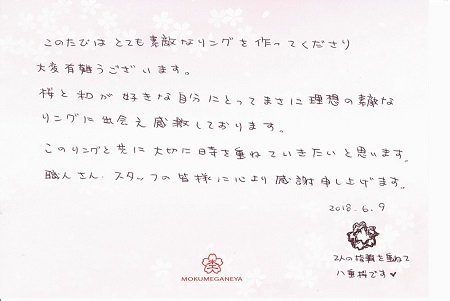 このたびは とても 素敵なリングを 作ってくださり
大変有難うございます。
桜と和が 好きな自分にとって まさに 理想の素敵な
リングに出会え 感激しております。
このリングと共に 大切に 日時を重ねていきたいと思います。
職人さん、スタッフの皆様に心より 感謝申し上げます。
2018.6.9
2人の指輪を重ねて
八重桜です♥
MOKUMEGANEYA